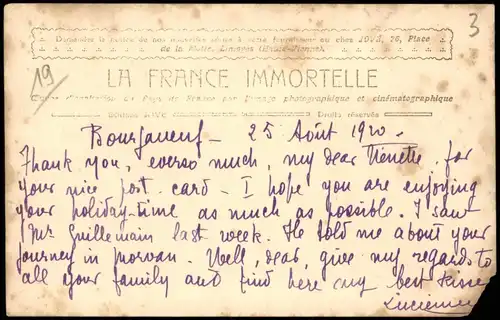 Demandez la suite de nos nouvelles séries à votre fournisseur ou chez JOVÉ, 26, Place
de la Motte, Limoges (Haute-Vienne).
3
19
LA FRANCE IMMORTELLE
du Pays de France par l'image photographique et cinématographique
Droits réservés
Bourganeuf - 25 Août 1920.
Thank you, everso much, my dear Ninette, for
your nice post card - I hope you are enjoying
your holiday-time as much as possible. I saw
Mr Guillemain last week. He told me about your
journey in Morvan. Well, dear, give my regards to
all your family and find here my best
Lucienne